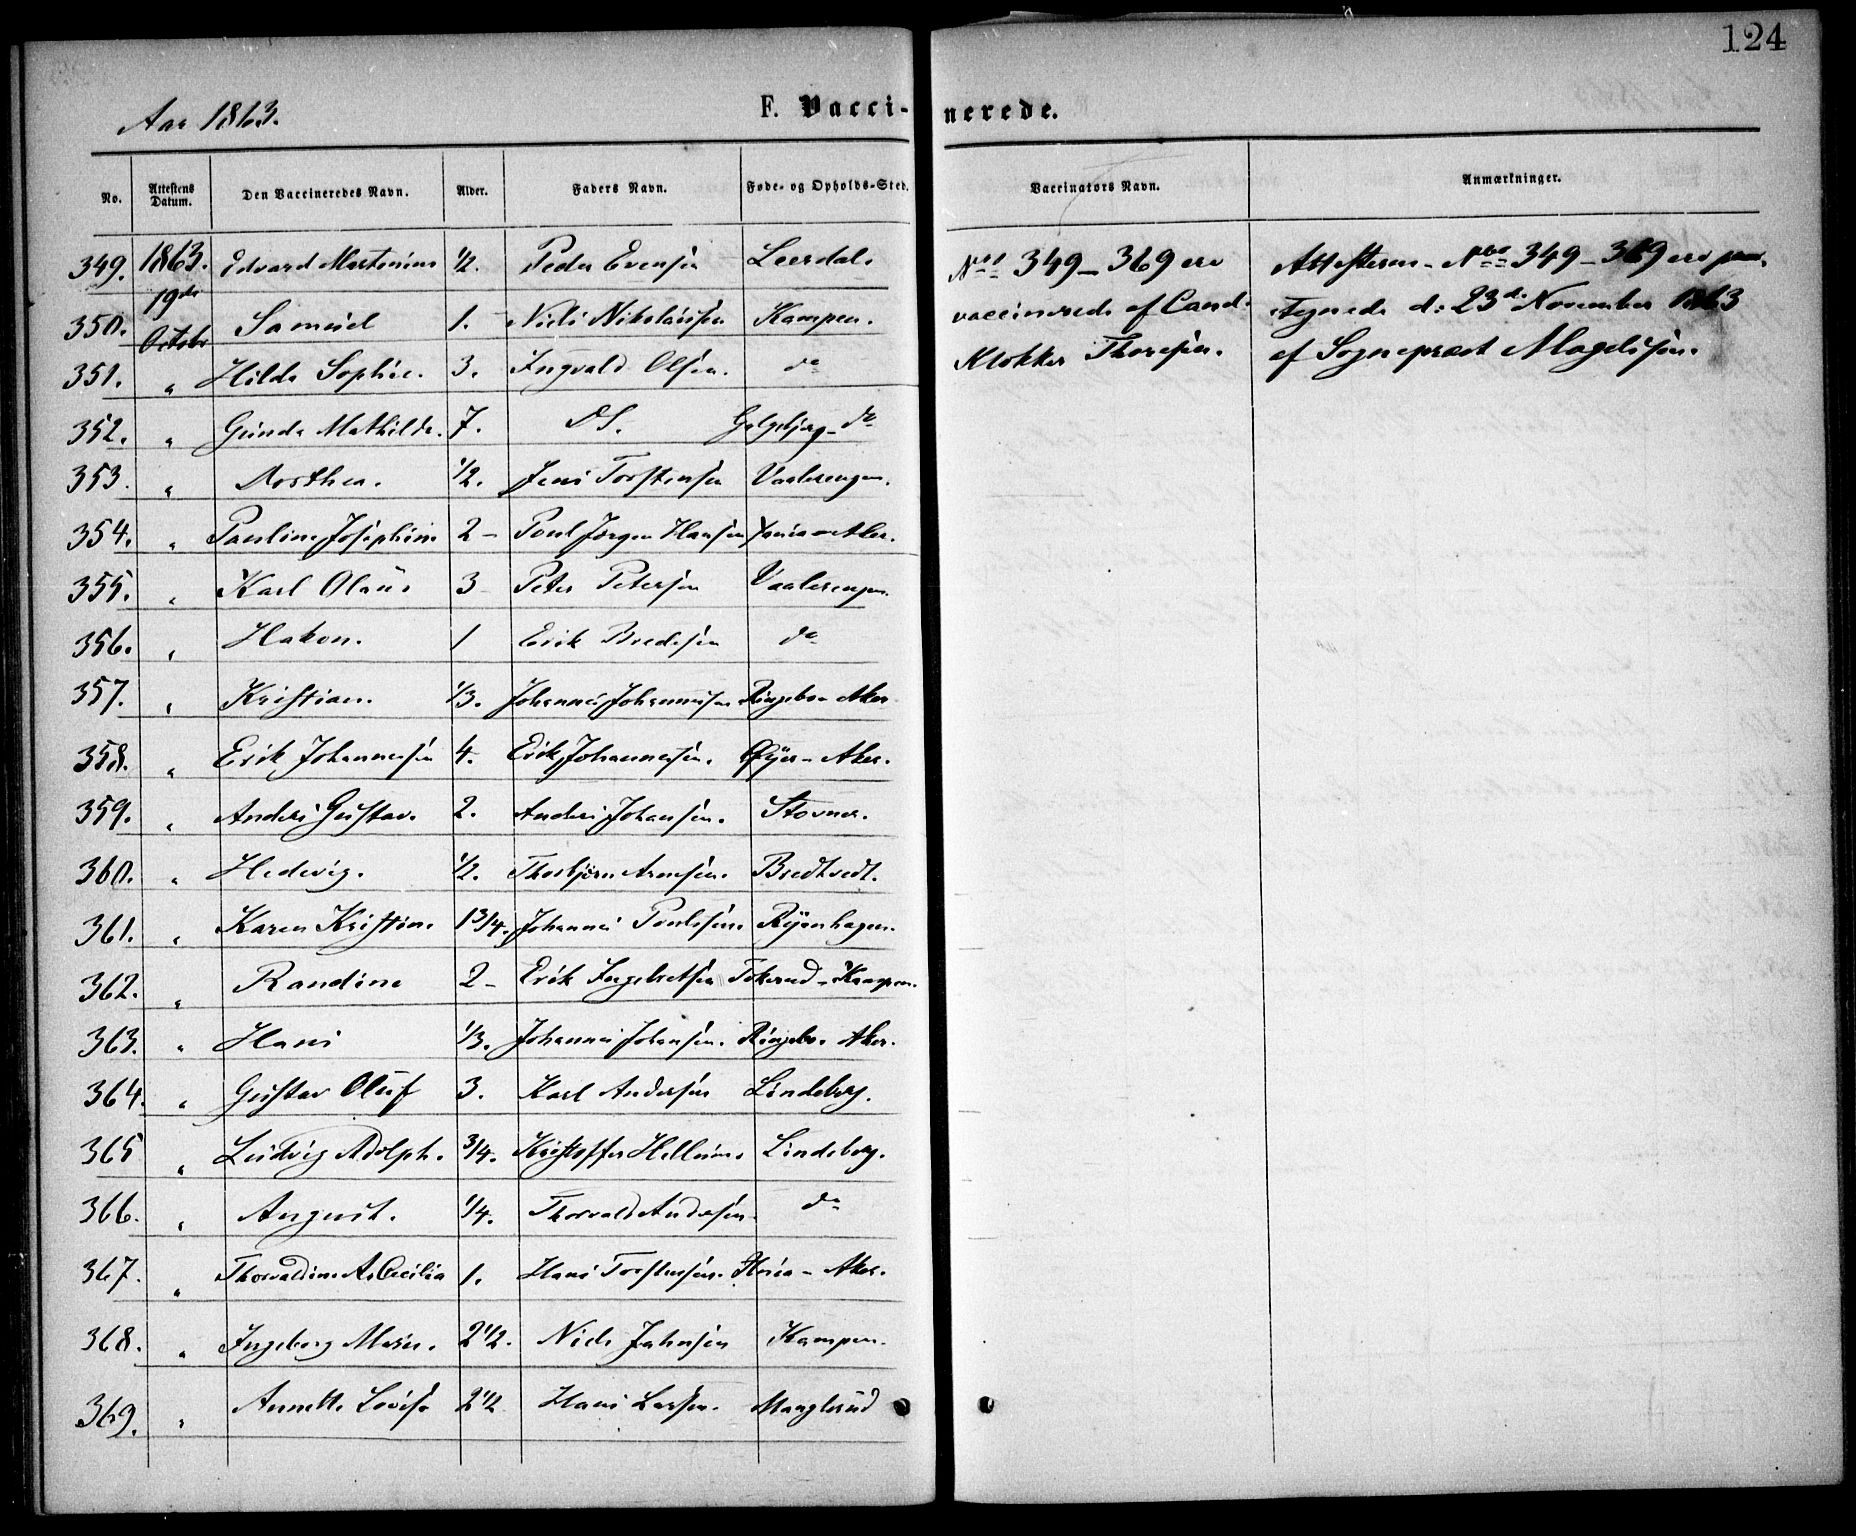 124
Aar 1863.
F. Vaccinerede.
No. Attestens Datum. Den Vaccineredes Navn. Alder. Faders Navn. Føde- og Opholds-Sted. Vaccinators Navn. Anmærkninger.
349. 1863. Edvard Martinius ½. Peder Evensen Leerdal.
350. 19de Octobr Samuel 1. Niels Nikolaisen Kampen.
351. " Hilda Sophie. 3. Ingvald Olsen. do
352. " Gunda Mathilde. 7. DS. Galgebjerg - do
353. " Dorthea. ½. Jens Torstensen Vaalerengen.
354. " Pauline Josephine 2 - Poul Jørgen Hansen Xania - Aker.
355. " Karl Olaus 3 Peter Petersen Vaalerengen.
356. " Hakon. 1 Erik Bredesen do
357. " Kristian. 1/3. Johannes Johannesen Ringebo - Aker
358. " Erik Johannesen 4. Erik Johannesen. Øyer - Aker.
359. " Anders Gustav. 2. Anders Johansen. Stovner.
360. " Hedevig. ½. Thorbjørn Arnesen. Bredtvedt.
361. " Karen Kristine. 1 3/4. Johannes Poulsen. Ryenhagen.
362. " Randine 2 - Erik Ingebretsen Tokerud - Kampen.
363. " Hans 1/3. Johannes Johansen. Ringebo. Aker.
364. " Gustav Oluf 3. Karl Andersen Lindeberg.
365 " Ludvig Adolph. 3/4. Kristoffer Lindeberg.
366. " August. 1/4. Thorvald Andersen. do
367. " Thorvaldine A. Cecilia 1. Hans Torstensen. - Aker.
368. " Ingeborg Marie. 2½. Niels Jahnsen Kampen.
369. " Annette Lovise 2½ Hans Larsen. Manglerud
Nos 349 - 369 ere
vaccinerede af Cand.
Klokker Thoresen.
Attesterne - Nos 349 - 369 ere paa-
tegnede d: 23d. November 1863
af Sognepræst Magelssen.